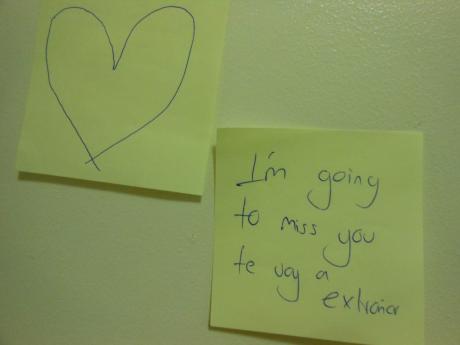 I'm going
to miss you
te voy a
extrañar